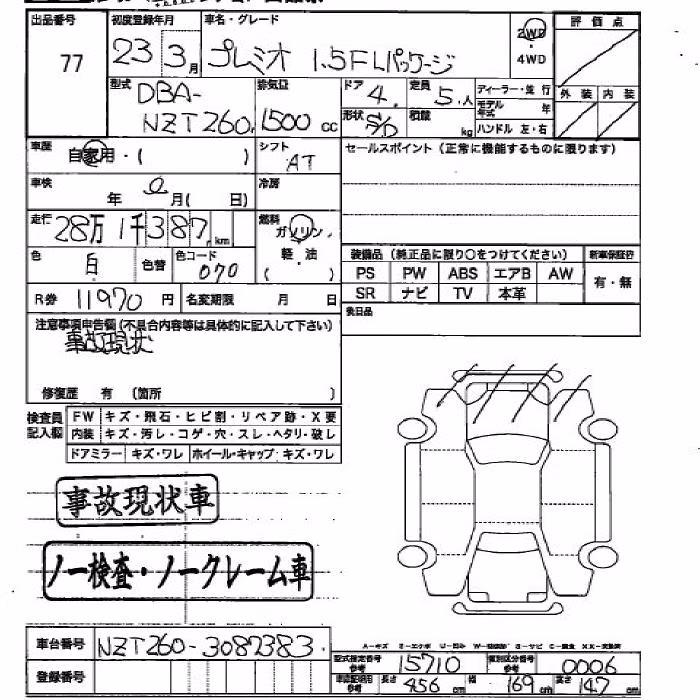 出品番号 初度登録年月 車名・グレード 2WD ・ 4WD 評価点
77 23 3月 プレミオ 1.5FLパッケージ
型式 DBA-NZT260 排気量 1500cc ドア 4 定員 5人 ディーラー・並行 外装 内装
形状 S/D 積載 kg モデル年式 年 ハンドル 左・右
車歴 自家用・( ) シフト AT セールスポイント(正常に機能するものに限ります)
車検 年 0月( 日) 冷房
走行 28万1千387km 燃料 ガソリン 軽・油 ( )
色 白 色替 色コード 070 装備品(純正品に限り○をつけてください) 新車保証書
PS PW ABS エアB AW 有・無
SR ナビ TV 本革
R券 11970円 名変期限 月 日 後日品
注意事項申告欄(不具合内容等は具体的に記入して下さい)
事故現状
修復歴 有 (箇所 )
検査員記入欄 FW キズ・飛石・ヒビ割・リペア跡・X要
内装 キズ・汚し・コゲ・穴・スレ・ヘタリ・破し
ドアミラー キズ・ワレ ホイール・キャップ キズ・ワレ
事故現状車
ノー検査・ノークレーム車
車台番号 NZT260-3087383
型式指定番号 参考 15710 類別区分番号 参考 0006
登録番号 車庫証明用 参考 長さ 456cm 幅 169cm 高さ 147cm